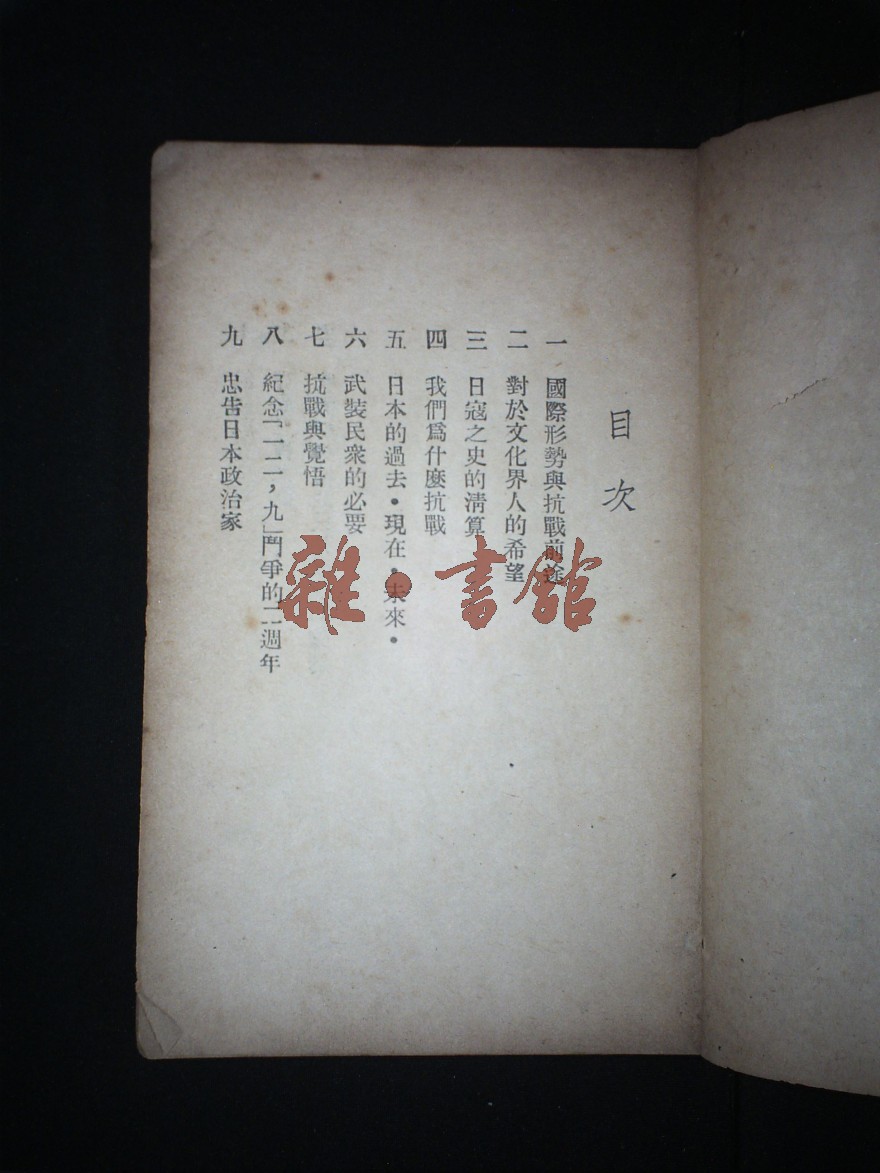 目次
一 國際形勢與抗戰前途
二 對於文化界人的希望
三 日寇之史的清算
四 我們爲什麼抗戰
五 日本的過去•現在•未來•
六 武裝民衆的必要
七 抗戰與覺悟
八 紀念「一二，九」鬥爭的二週年
九 忠告日本政治家
雜•書館